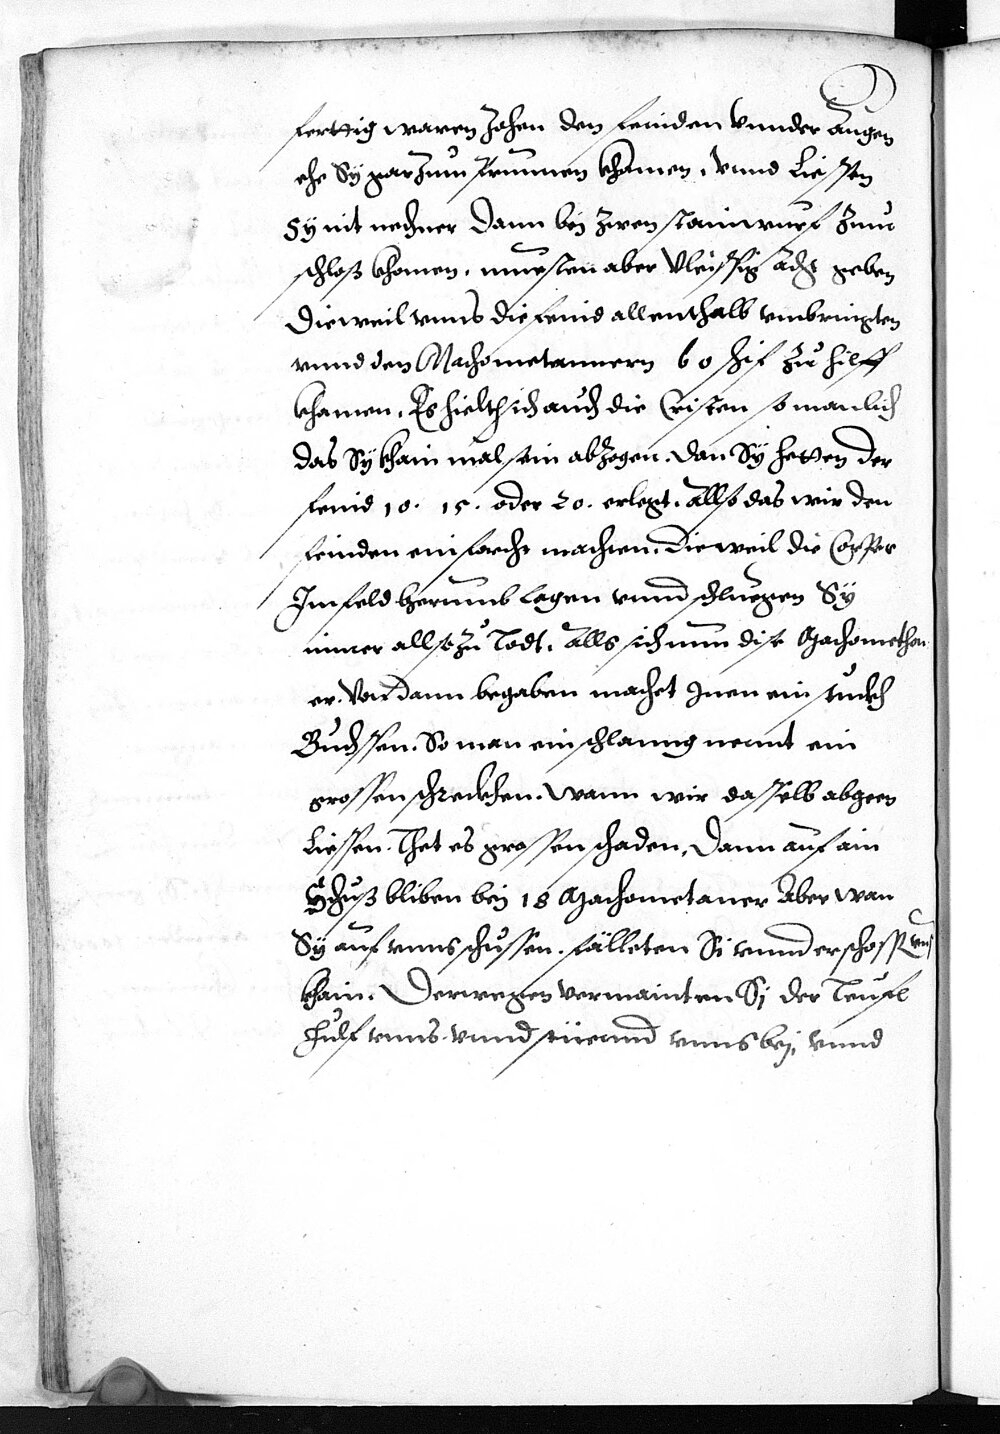 ferttig waren Zohen den feinden vnnder augen
ehe Sy gar zum prunnen khamen, vnnd Liessen
Sy nit necher Dann bej zwen stainwurf Zum
schloß khomen. muesten aber vleissig acht geben
Dieweil vnns die feind allenthalb vmbringten
vnnd den Machometannern 60 schif zu hilff
khamen. Es hielth sich auch die Cristen so manlich
das Sy khain mal sein abzogen. dan Sy hetten der
feind 10. 15. oder 20. erlegt. allso das wir den
feinden ein forcht machten. Dieweil die Cörper
Im feld herumb lagen vnnd schluegen Sy
immer allso zu Todt. alls sich nun dise Machomethan
er. Von dann begaben machet Inen ein stuckh
Buchssen. So man ein schlanng nennt ein
grossen schreckhen. Wann wir dasselb abgeen
Liessen. Thet es grossen schaden. Dann auf ain
Schuß bliben bej 18 Machometaner Aber wan
Sy auf vnns schussen. fälleten Si vnnd erschossen vns
khain. Derwegen vermainten Si der Teufl
hulf vnns. vnnd stüennd vnns bej, vnnd